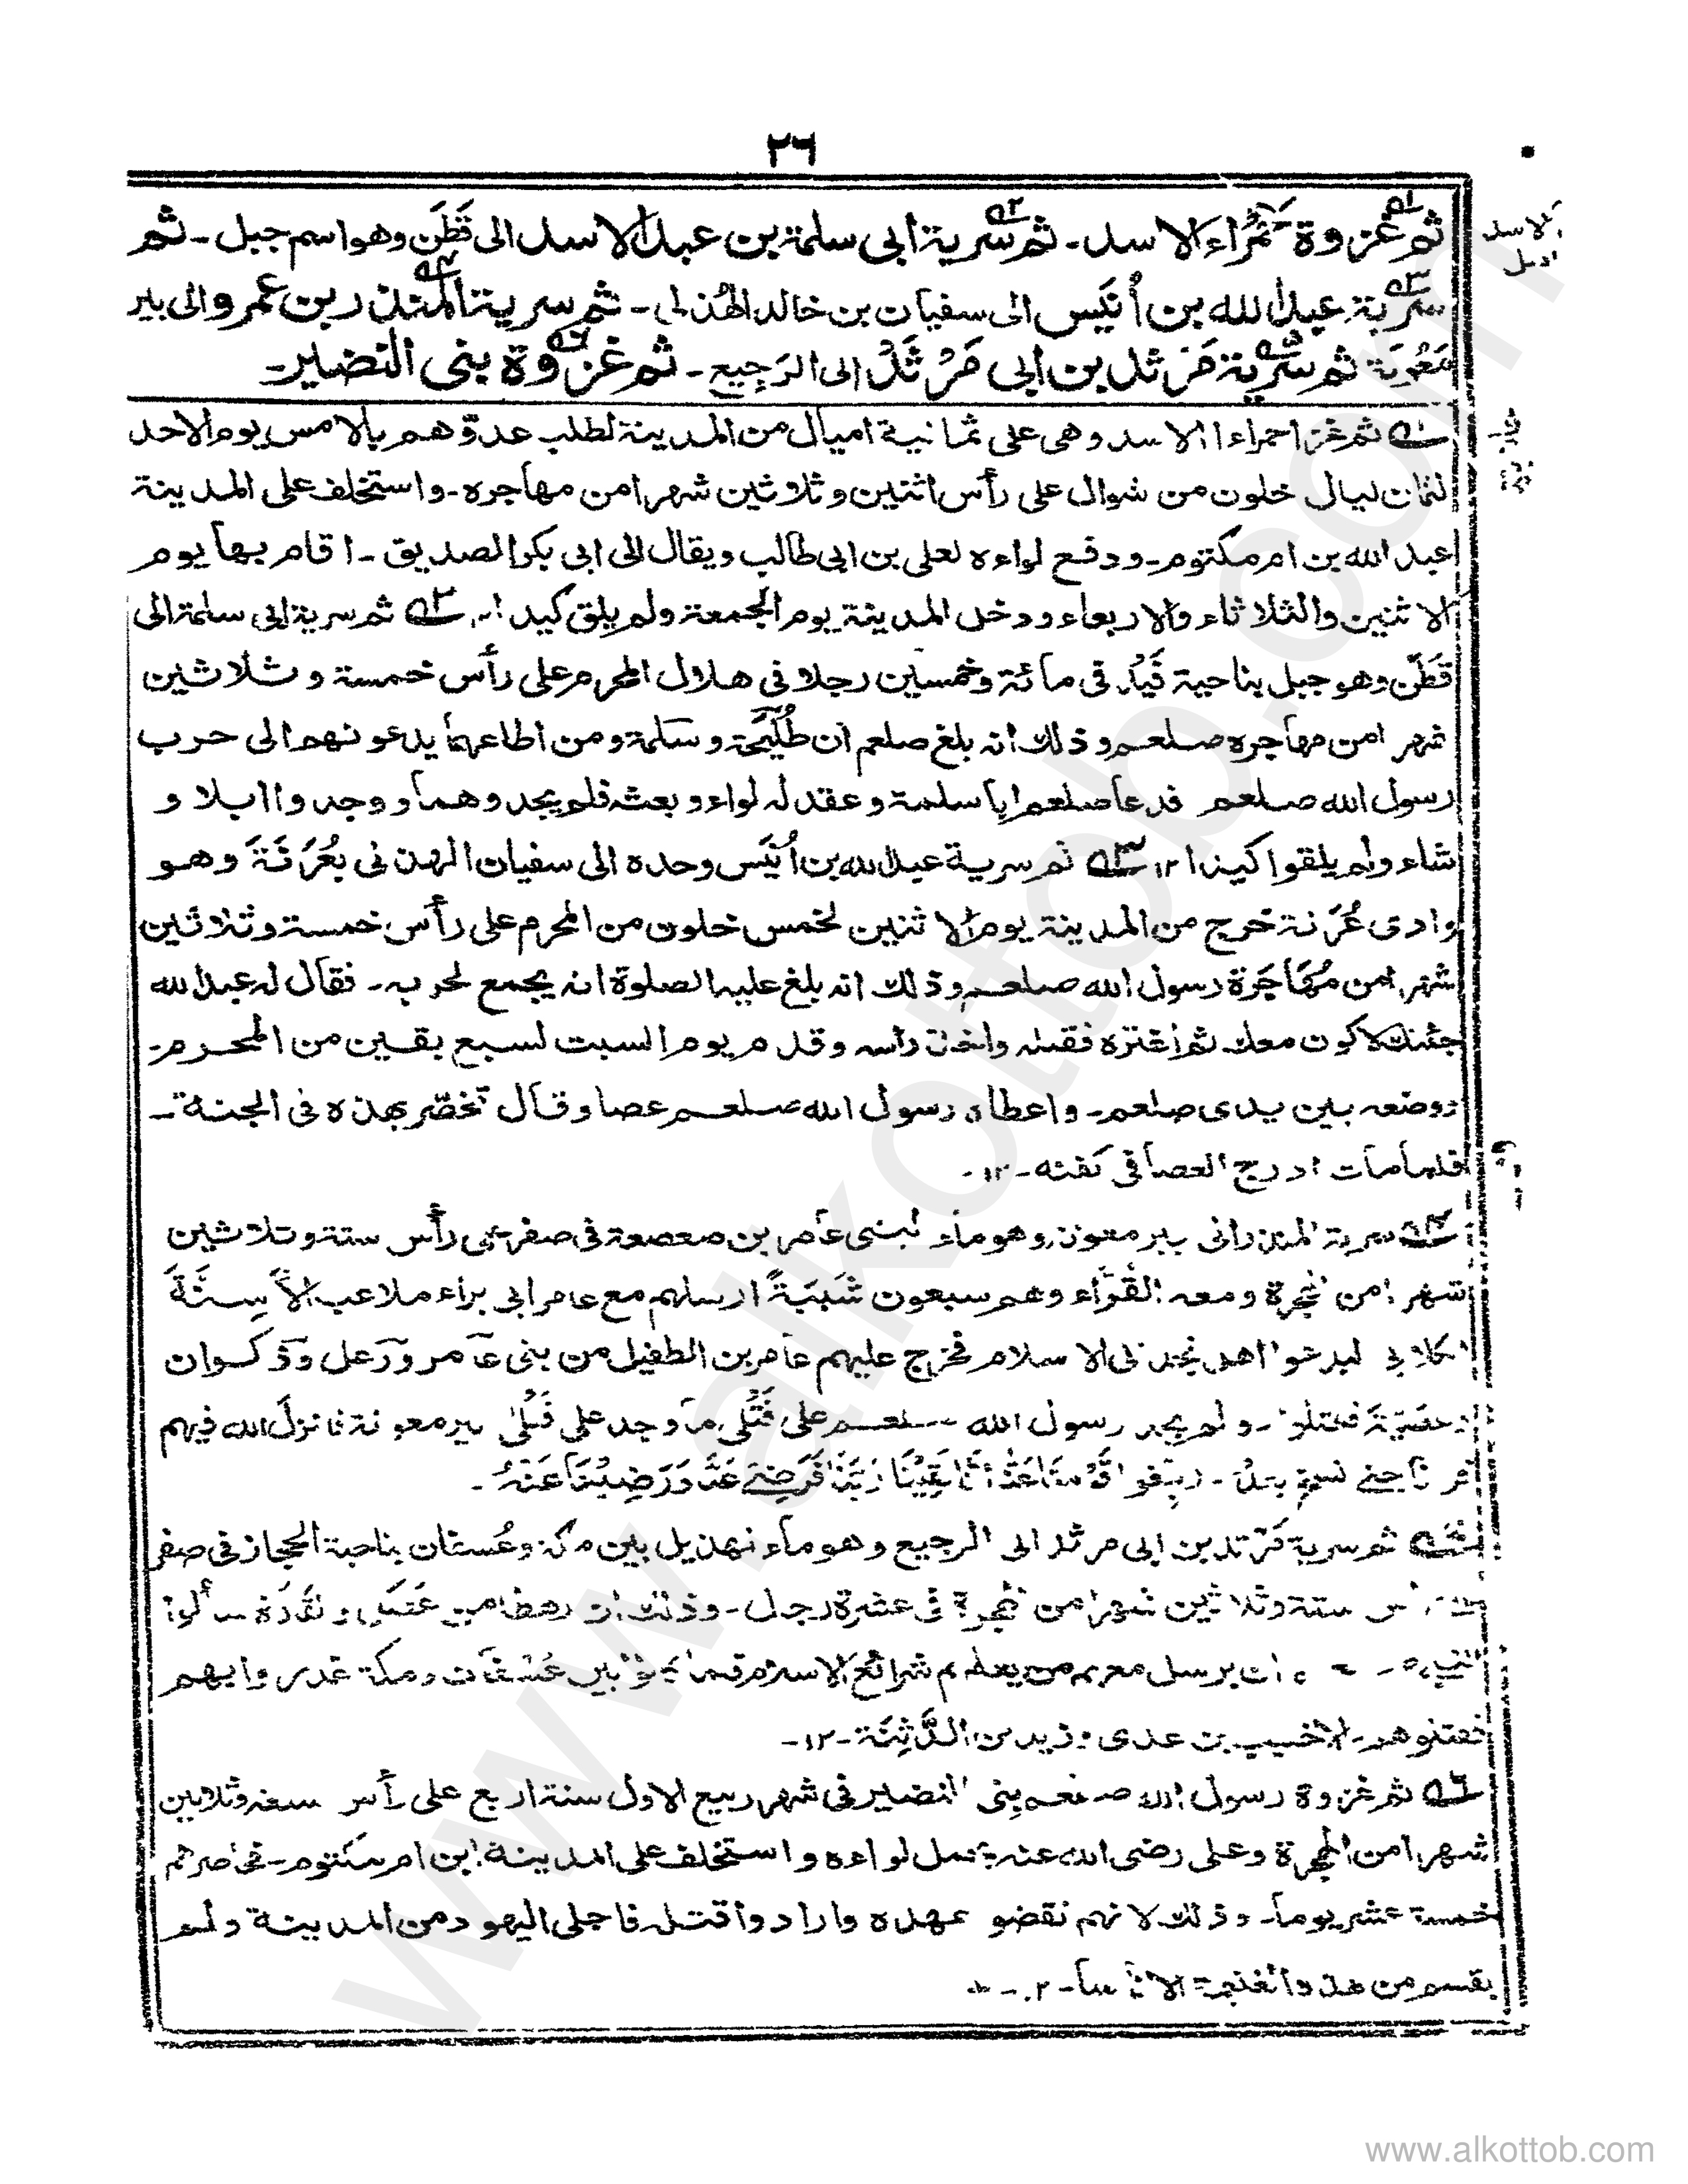 ٢٦
ثم غزوة حَمْرَاء الاسد ـ ثم سرية ابى سلمة بن عبد الاسد الى قَطَن وهو اسم جبل ـ ثم
سرية عبد الله بن اُنَيس الى سفيان بن خالد الهُذلى ـ ثم سرية المنذر بن عمرو الى بير
مَعُونة ثم سرية مَرْثد بن ابى مَرْثَد الى الرَجِيع ـ ثم غزوة بنى النضير ـ
الاسد
١ـه ثم غزا حمراء الاسد وهى على ثمانية اميال من المدينة لطلب عدوّهم بالامس يوم الاحد
لثمان ليال خلون من شوال على رأس اثنين وثلاثين شهرا من مهاجره ـ واستخلف على المدينة
عبد الله بن ام مكتوم ـ ودفع لواءه لعلى بن ابى طالب ويقال الى ابى بكر الصديق ـ اقام بها يوم
الاثنين والثلاثاء والاربعاء ودخل المدينة يوم الجمعة ولم يلق كيدا ـ ٢ـه ثم سرية ابى سلمة الى
قَطَن وهو جبل بناحية فَيْد فى مائة وخمسين رجلا فى هلال المحرم على رأس خمسة وثلاثين
شهرا من مهاجره صلعم وذلك انه بلغ صلعم ان طُلَيْحَة وسَلمة ومن اطاعهما يدعونهم الى حرب
رسول الله صلعم فدعا صلعم ابا سلمة وعقد له لواء وبعثه فلم يجد وهما ووجدوا ابلا و
شاء ولم يلقوا كيدا ١٢ ٣ـه ثم سرية عبد الله بن اُنَيْس وحده الى سفيان الهذلى بعُرَنَةَ وهو
وادى عُرَنة خرج من المدينة يوم الاثنين لخمس خلون من المحرم على رأس خمسة وثلاثين
شهرا من مُهَاجَرَة رسول الله صلعم وذلك انه بلغ عليه الصلوة انه يجمع لحربه ـ فقال له عبد الله
جئتك لاكون معك ثم اغتره فقتله واخذ رأسه وقدم يوم السبت لسبع بقين من المحرم ـ
ووضعه بين يدى صلعم ـ واعطاه رسول الله صلعم عصا وقال تخصّر بهذه فى الجنة ـ
فلما مات ادرج العصا فى كفنه ـ ١٢ ـ
٤ـه سرية المنذر الى بير معونة وهو ماء لبنى عامر بن صعصعة فى صفر على رأس ستة وثلاثين
شهرا من الهجرة ومعه القُرّاء وهم سبعون شَبَبَةً ارسلهم مع عامر ابى براء ملاعب الاَسِنَّةَ
الكلابى ليدعوا اهل نجد الى الاسلام فخرج عليهم عامر بن الطفيل من بنى عامر ورَعل وذَكوان
وعصَيّة فقتلوا ـ ولم يجد رسول الله صلعم على قَتْلى ما وجد على قَتْلى بير معونة فانزل الله فيهم
لَقِيْنَا رَبَّنَا فَرَضِىَ عَنَّا وَرَضِيْنَا عَنْهُ ـ
٥ـه ثم سرية مَرْثد بن ابى مرثد الى الرجيع وهو ماء لهذيل بين مكة وعُسفان بناحية الحجاز فى صفر
ستة وثلاثين شهرا من الهجرة فى عشرة رجال ـ وذلك ان رهطا من عَضَل وَالقَارَة سألوا
ان يرسل معهم من يعلمهم شرائع الاسلام فلما كانوا بين عُسْفَان ومكة غدروا بهم
فقتلوهم ـ الا خبيب بن عدى وزيد بن الدَّثِنَة ـ ١٢ ـ
٦ـه ثم غزوة رسول الله صلعم بنى النضير فى شهر ربيع الاول سنة اربع على رأس سبعة وثلاثين
شهرا من الهجرة وعلى رضى الله عنه يحمل لواءه واستخلف على المدينة ابن ام مكتوم ـ فحاصرهم
خمسة عشر يوما ـ وذلك لانهم نقضو عهده وارادوا قتله فاجلى اليهود من المدينة ولم
يقسم من هذه الغنيمة
www.alkottob.com
www.alkottob.com